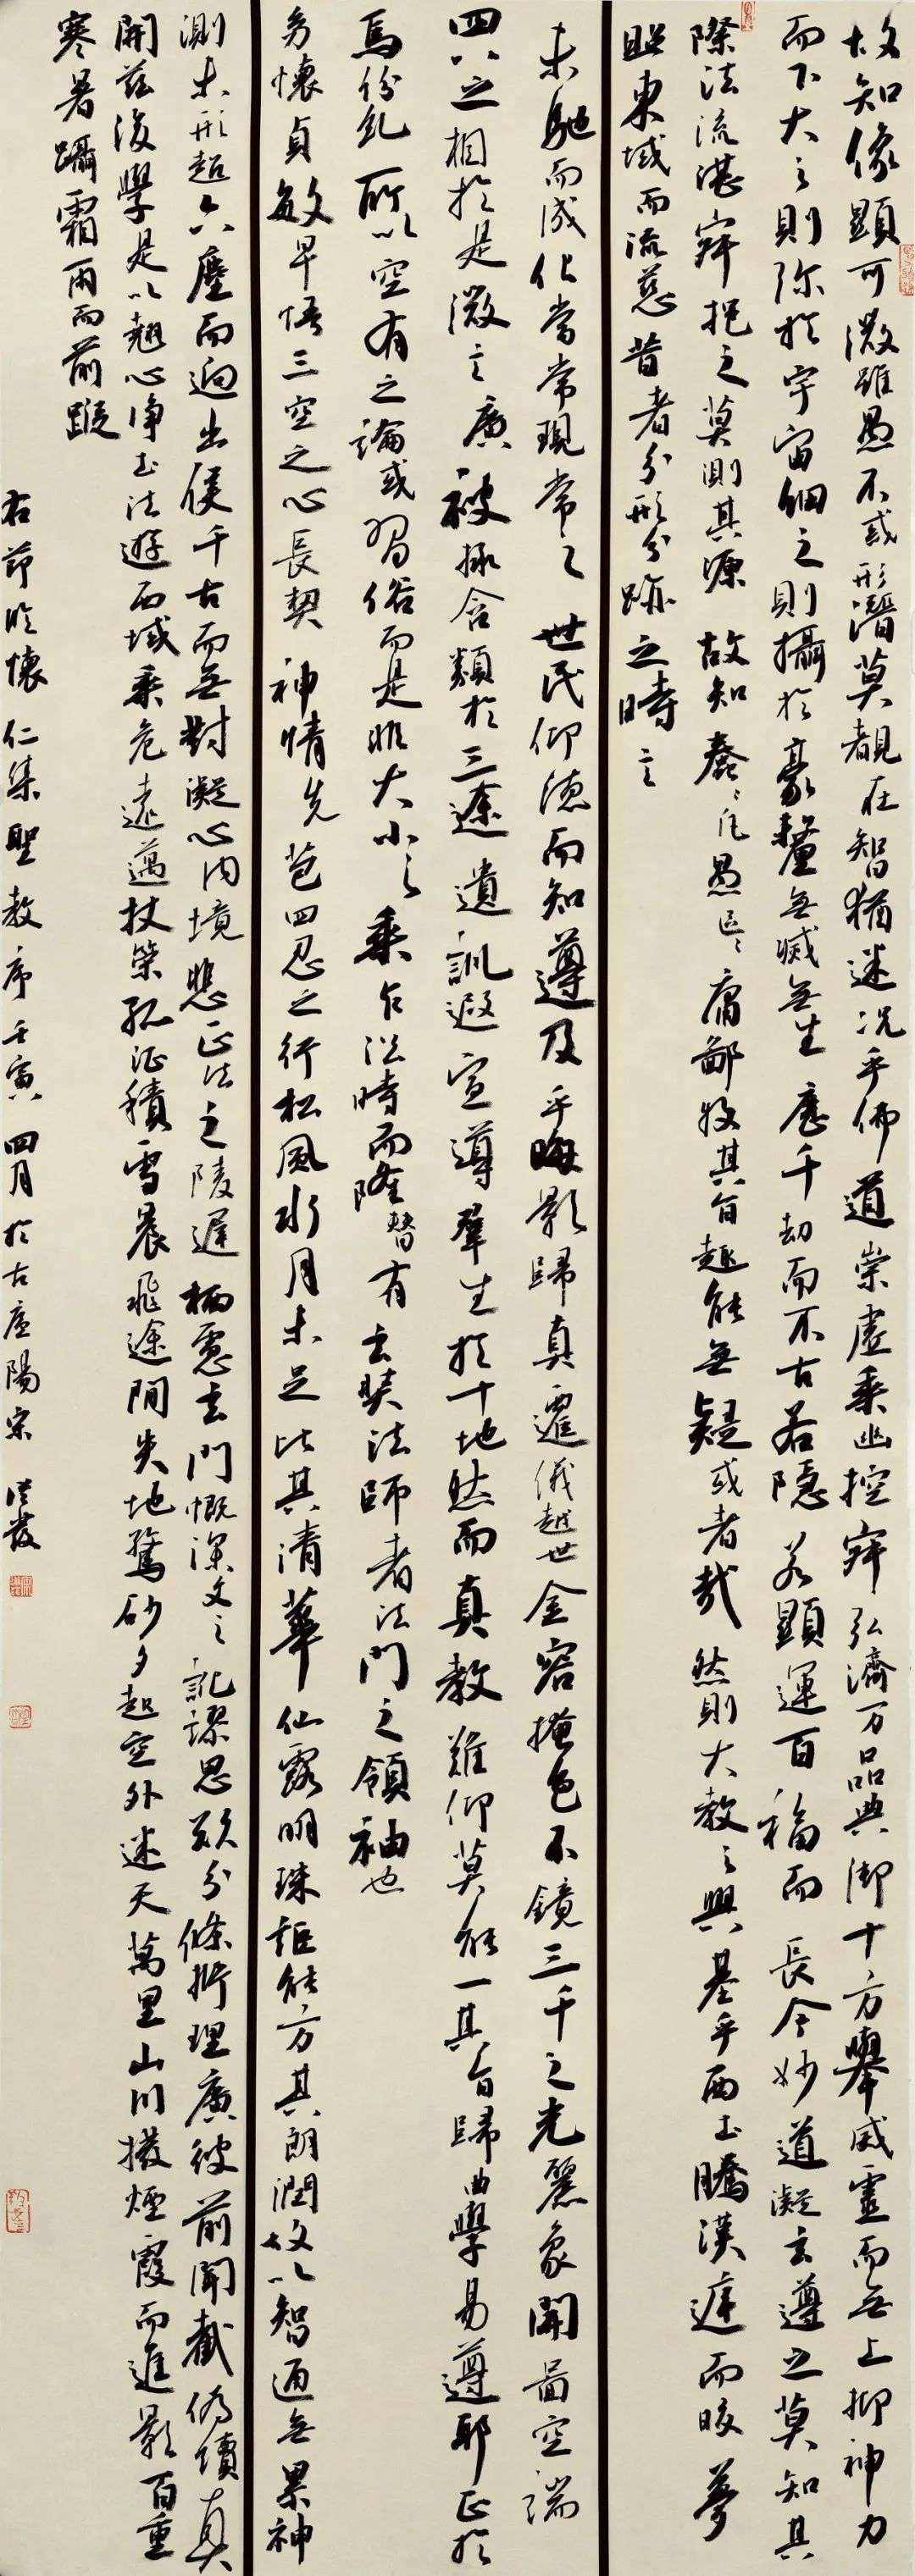 故知像顯可徵雖愚不惑形潛莫覩在智猶迷況乎佛道崇虛乘幽控寂弘濟万品典御十方舉威靈而無上抑神力
而下大之則弥於宇宙細之則攝於豪釐無滅無生歷千劫而不古若隱若顯運百福而長今妙道凝玄遵之莫知其
際法流湛寂挹之莫測其源故知蠢蠢凡愚區區庸鄙投其旨趣能無疑或者哉然則大教之興基乎西土騰漢庭而皎夢
照東域而流慈昔者分形分跡之時言
未馳而成化當常現常之世民仰德而知遵及乎晦影歸真遷儀越世金容掩色不鏡三千之光麗象開圖空端
四八之相於是微言廣被拯含類於三途遺訓遐宣導羣生於十地然而真教難仰莫能一其旨歸曲學易遵耶正於
焉紛糺所以空有之論或習俗而是非大小之乘乍沿時而隆替有玄奘法師者法門之領袖也
多懷貞敏早悟三空之心長契神情先苞四忍之行松風水月未足比其清華仙露明珠詎能方其朗潤故以智通無累神
測未形超六塵而迥出侯千古而無對凝心內境悲正法之陵遲栖慮玄門慨深文之訛謬思欲分條析理廣彼前聞截偽續真
開茲後學是以翹心淨土法遊西域乘危遠邁杖策孤征積雪晨飛途閒失地驚砂夕起空外迷天萬里山川撥煙霞而進影百重
寒暑躡霜雨而前蹤
右節臨懷仁集聖教序壬寅四月於古廬陽宋